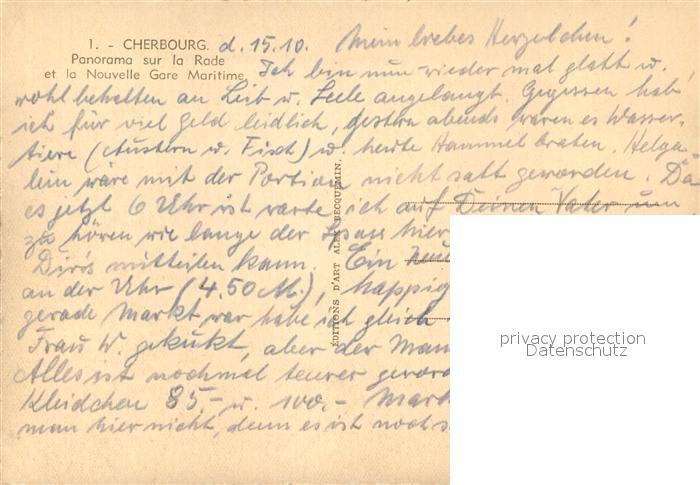 1. - CHERBOURG. d. 15.10. Mein liebes Herzelchen!
Panorama sur la Rade
et la Nouvelle Gare Maritime. Ich bin nun wieder mal glatt u.
wohl behalten an Leib u. Seele angelangt. Gegessen hab
ich für viel Geld leidlich, gestern abends waren es Wasser-
tiere (Austern u. Fisch) u. heute Hammelbraten. Helga-
lein wäre mit der Portion nicht satt geworden. Da
es jetzt 6 Uhr ist warte ich auf Deinen Vater um
zu hören wie lange der Spass hier
Dir's mitteilen kann. Ein neu
an der Uhr (4.50 M.), happig
gerade Markt war habe ich gleich
Frau W. gekukt, aber der Man
Alles ist nochmal teurer geword
Kleidchen 85,- u. 100,- Mark
man hier nicht, denn es ist noch s
ÉDITIONS D'ART ALEX BECQUEMIN.
privacy protection
Datenschutz